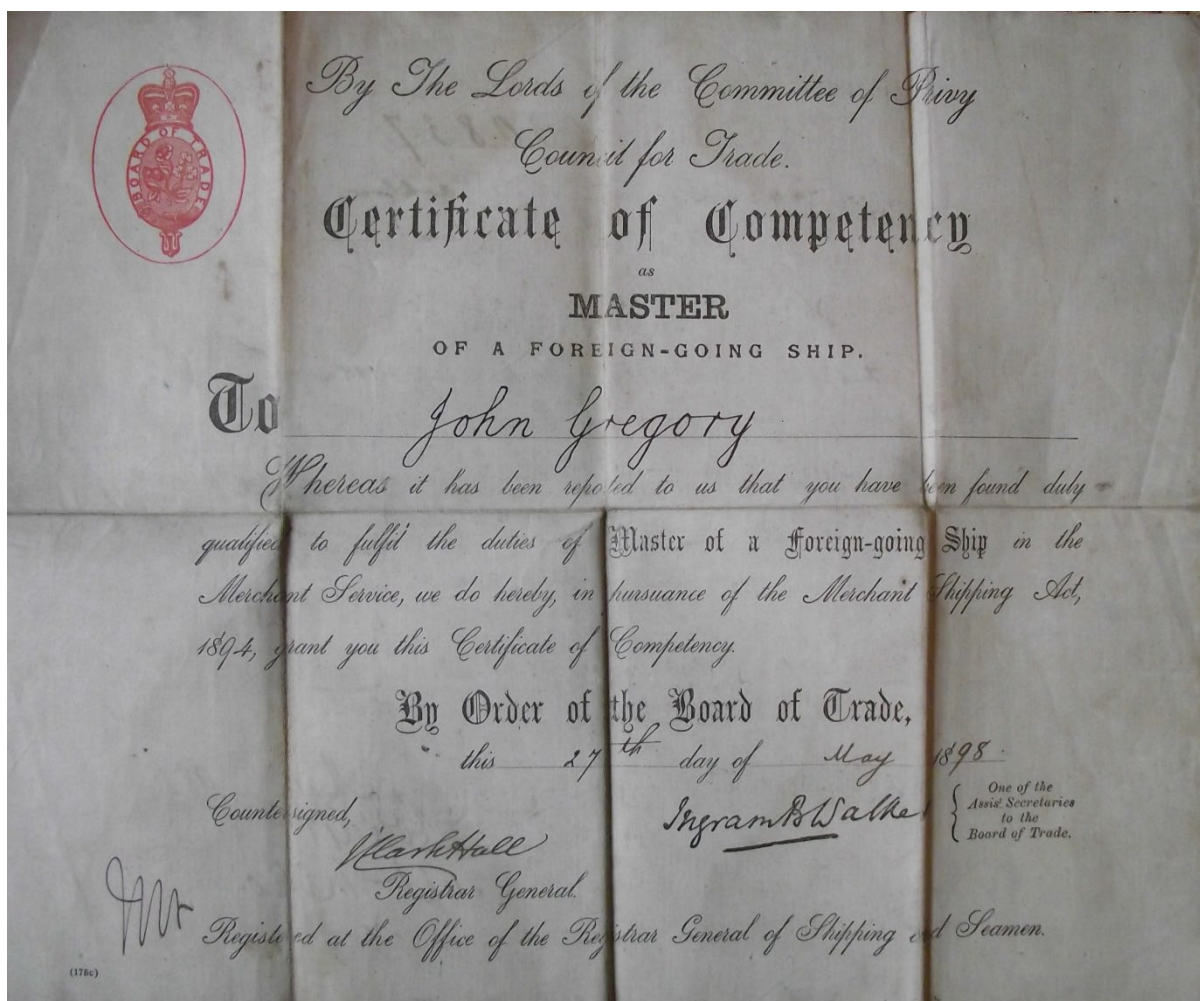 BOARD OF TRADE
By The Lords of the Committee of Privy
Council for Trade.
Certificate of Competency
as
MASTER
OF A FOREIGN-GOING SHIP.
To John Gregory
Whereas it has been reported to us that you have been found duly
qualified to fulfil the duties of Master of a Foreign-going Ship in the
Merchant Service, we do hereby, in pursuance of the Merchant Shipping Act,
1894, grant you this Certificate of Competency.
By Order of the Board of Trade,
this 27th day of May 1898.
Countersigned,
Ingram B Walker
One of the
Assist Secretaries
to the
Board of Trade.
J Clark Hall
Registrar General.
Registered at the Office of the Registrar General of Shipping and Seamen.
(176c)